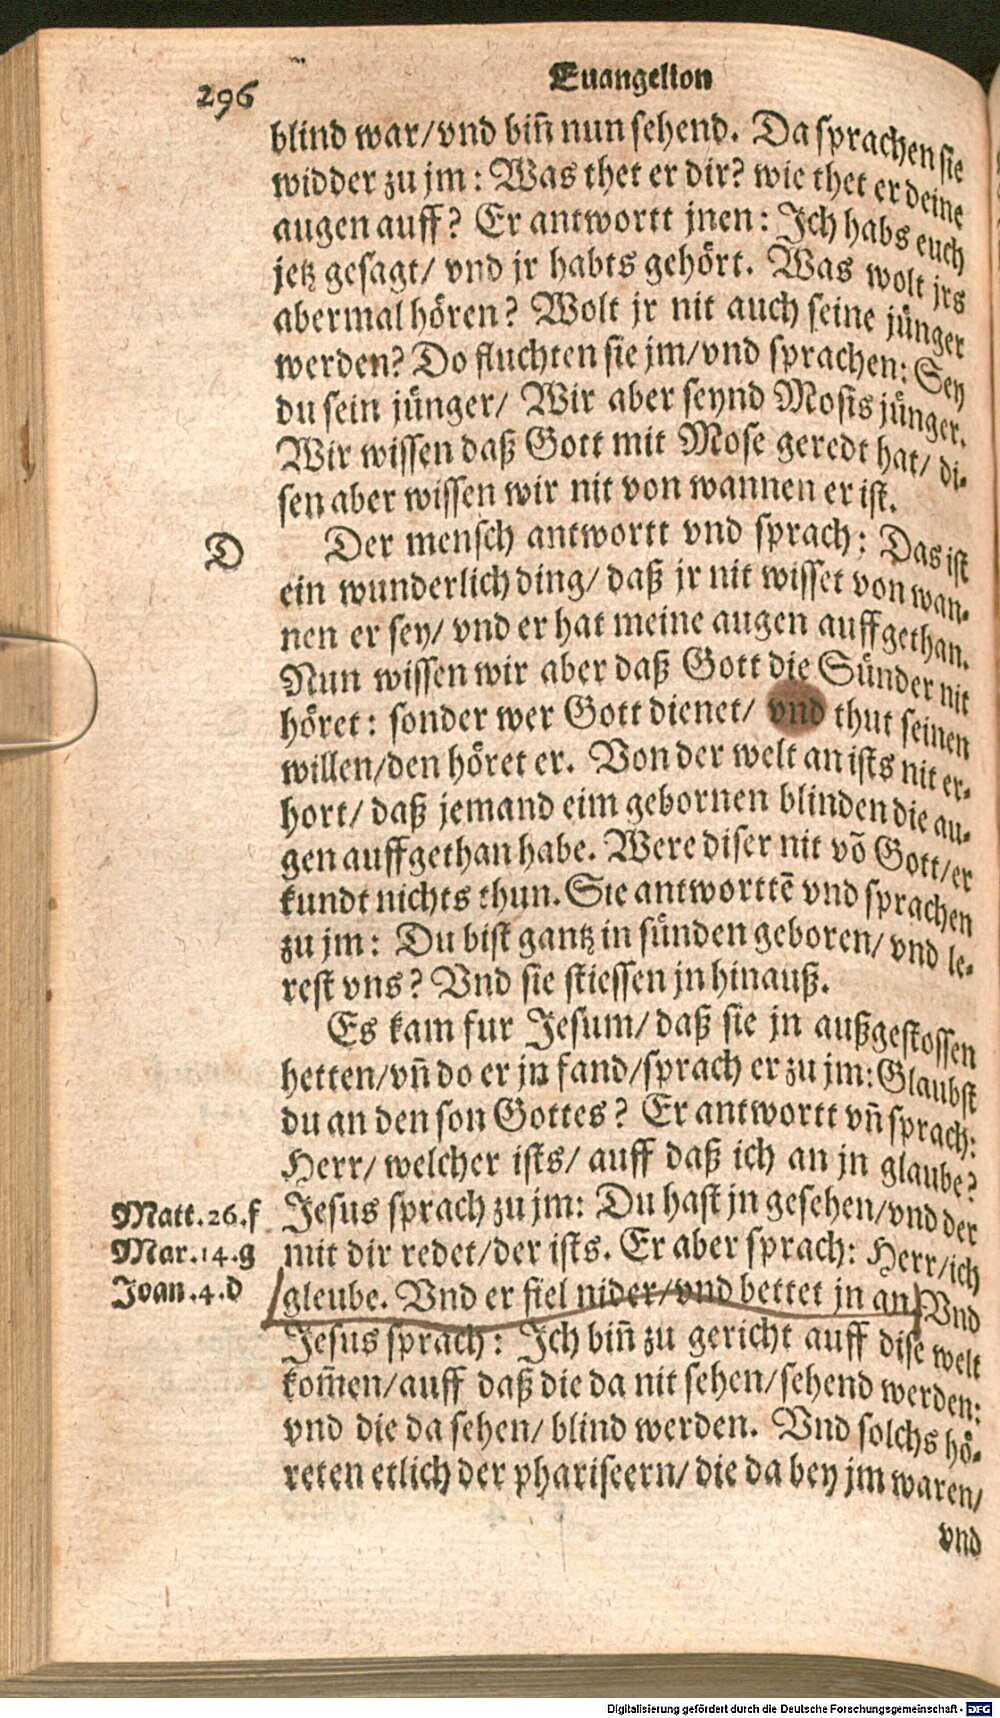 296
Euangelion
blind war/vnd biñ nun sehend. Da sprachen sie
widder zu jm: Was thet er dir? wie thet er deine
augen auff? Er antwortt jnen: Jch habs euch
jetz gesagt/ vnd jr habts gehört. Was wolt jrs
abermal hören? Wolt jr nit auch seine jünger
werden? Do fluchten sie jm/vnd sprachen: Sey
du sein jünger/ Wir aber seynd Mosis jünger.
Wir wissen daß Gott mit Mose geredt hat/ di-
sen aber wissen wir nit von wannen er ist.
D
Der mensch antwortt vnd sprach: Das ist
ein wunderlich ding/ daß jr nit wisset von wan-
nen er sey/ vnd er hat meine augen auffgethan.
Nun wissen wir aber daß Gott die Sünder nit
höret: sonder wer Gott dienet/ vnd thut seinen
willen/den höret er. Von der welt an ists nit er-
hort/ daß jemand eim gebornen blinden die au-
gen auffgethan habe. Were diser nit võ Gott/er
kundt nichts thun. Sie antworttẽ vnd sprachen
zu jm: Du bist gantz in sünden geboren/ vnd le-
rest vns? Vnd sie stiessen jn hinauß.
Es kam fur Jesum/ daß sie jn außgestossen
hetten/vñ do er jn fand/sprach er zu jm: Glaubst
du an den son Gottes? Er antwortt vñ sprach:
Herr/ welcher ists/ auff daß ich an jn glaube?
Matt.26.f
Jesus sprach zu jm: Du hast jn gesehen/vnd der
Mar.14.g
mit dir redet/der ists. Er aber sprach: Herr/ich
Joan.4.d
gleube. Vnd er fiel nider/vnd bettet jn an/ Vnd
Jesus sprach: Jch biñ zu gericht auff dise welt
kom̃en/auff daß die da nit sehen/sehend werden:
vnd die da sehen/ blind werden. Vnd solchs hö-
reten etlich der phariseern/ die da bey jm waren/
vnd
Digitalisierung gefördert durch die Deutsche Forschungsgemeinschaft - DFG